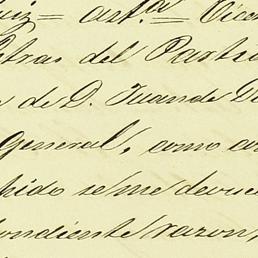 uiz= art.a Vice
etras del Partid
de D. Juan de D
General, como a
hido se me devue
ondiente razon,